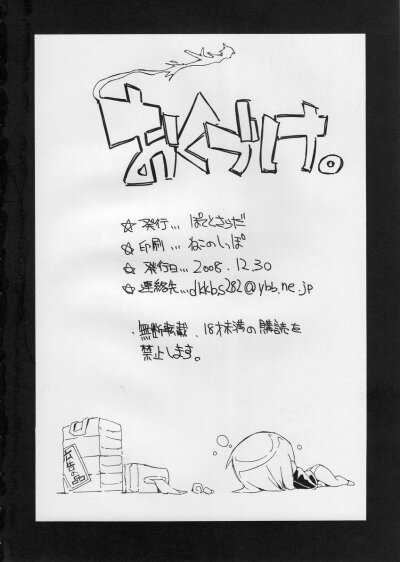 おくづけ。
☆ 発行... ぽてとさらだ
☆ 印刷... ねこのしっぽ
☆ 発行日... 2008.12.30
☆ 連絡先...dkkbs282@ybb.ne.jp
・無断転載、18才未満の購読を
禁止します。